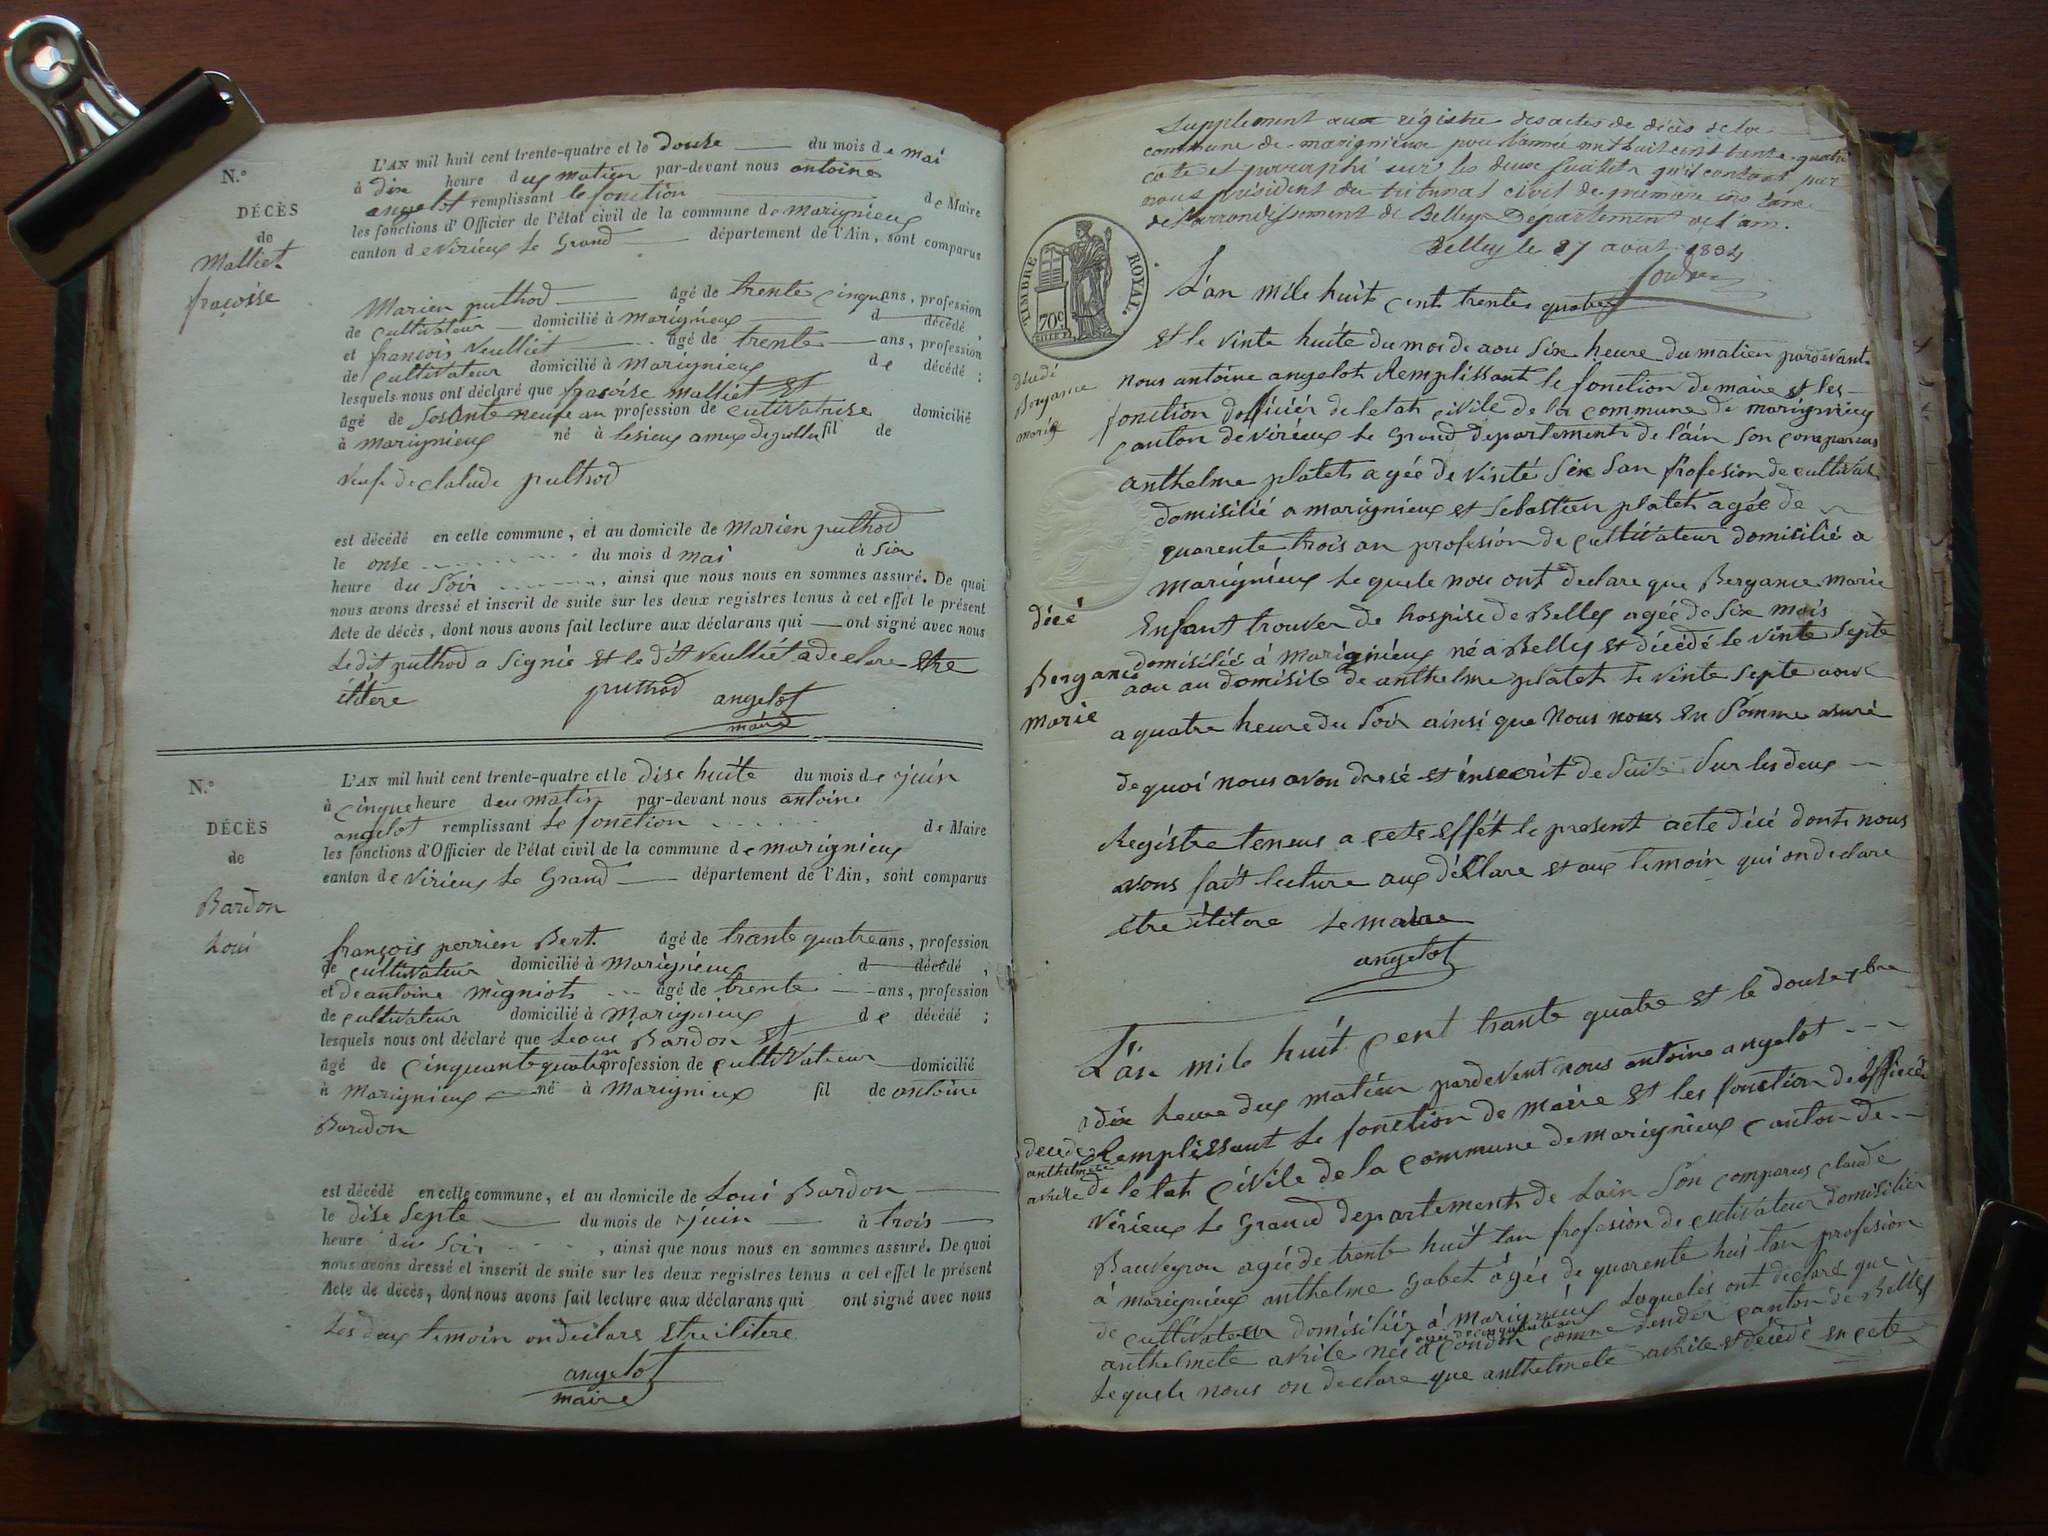 N.°
DÉCÈS
de
Malliet
fraçoise
L'AN mil huit cent trente-quatre et le douse du mois de mai
à dix heure dux matien par-devant nous antoine
angelot remplissant le fonction de Maire
les fonctions d'Officier de l'état civil de la commune de marignieux
canton de virieux le Grand département de l'Ain, sont comparus
Marien puthod âgé de trente cinque ans, profession
de cultivateur domicilié à marignieux d décédé,
et françois veulliet âgé de trente ans, profession
de cultivateur domicilié à marignieux de décédé;
lesquels nous ont déclaré que fraçoise malliet et
âgé de sosante neufe an profession de cultivatrise domicilié
à marignieux né à lesieux fil de
veufe de claude puthod
est décédé en cette commune, et au domicile de Marien puthod
le onse du mois d mai à six
heure du soir, ainsi que nous nous en sommes assuré. De quoi
nous avons dressé et inscrit de suite sur les deux registres tenus à cet effet le présent
Acte de décès, dont nous avons fait lecture aux déclarans qui ont signé avec nous
Le dit puthod a signie et le dit veulliet a declare etre
ilitere puthod angelot
maire
N.°
DÉCÈS
de
Bardon
Loui
L'AN mil huit cent trente-quatre et le dise huite du mois de juin
à cinque heure deu matin par-devant nous antoine
angelot remplissant le fonction de Maire
les fonctions d'Officier de l'état civil de la commune de marignieux
canton de virieux le Grand département de l'Ain, sont comparus
françois perrien Bert âgé de trante quatre ans, profession
de cultivateur domicilié à Marignieux d décédé,
et de antoine migniot âgé de trente ans, profession
de cultivateur domicilié à Marignieux de décédé;
lesquels nous ont déclaré que Loui Bardon et
âgé de cinquante quatre an profession de cultivateur domicilié
à Marignieux né à Marignieux fil de antoine
Bardon
est décédé en cette commune, et au domicile de Loui Bardon
le dise septe du mois de juin à trois
heure du soir, ainsi que nous nous en sommes assuré. De quoi
nous avons dressé et inscrit de suite sur les deux registres tenus a cet effet le présent
Acte de décès, dont nous avons fait lecture aux déclarans qui ont signé avec nous
Les deux temoin on declare etre ilitere
angelot
maire
Supplement aux régistre des actes de décès de la
commune de marignieux pour l'année mil huit cent trente-quatre
coté et parraphé sur les deux feuillets qu'il contient par
nous président du tribunal civil de première instance
de l'arrondissement de Belley Departement de l'ain.
Belley le 27 août 1834
TIMBRE ROYAL
70c
L'an mile huit cent trente quatre
et le vinte huite du mois de aou six heure du matien pardevant
nous antoine angelot Remplissant le fonction de maire et les
fonction dofficier de letat civile de la commune de marignieux
canton de virieux le Grand departement de l'ain son comparus
anthelme platet agée de vinte six dan profesion de cultivat
domisilié a marignieux et sebastien platet agée de
quarente trois an profesion de cultivateur domisilié a
marignieux le quele nou ont declare que Bergance marie
Enfant trouver de hospise de Belley agée de six mois
domisilié à Marignieux né a Belley et décédé le vinte septe
aou au domisile de anthelme platet le vinte septe aou
a quatre heure du soir ainsi que nous nous en somme asuré
de quoi nous avon dresé et inscrit de suite sur les deux
Registre teneus a cete effét le present acte décé dont nous
avons fait lecture aux déclare et aux temoin qui on declare
etre ilitere le maire
angelot
Bergance
marie
décé
Bergance
marie
L'an mile huit cent trante quatre et le douse xbre
a dix heure dux matien pardevent nous antoine angelot
Remplissant le fonction de maire et les fonction de officier
de letat civile de la commune de marignieux canton de
virieux le Grand departement de Lain son comparus claude
Bauveyron agée de trente huit tan profesion de cultivateur domisilier
à marignieux anthelme Gabet âgée de quarente huit tan profesion
de cultivateur domisilier à marignieux Laqueles ont declaré que
anthelmete avrile née à condon comune dender canton de Belley
Lequele nous on declare que anthelmete avrile et décédé en cete
decede
anthelmete
avrile